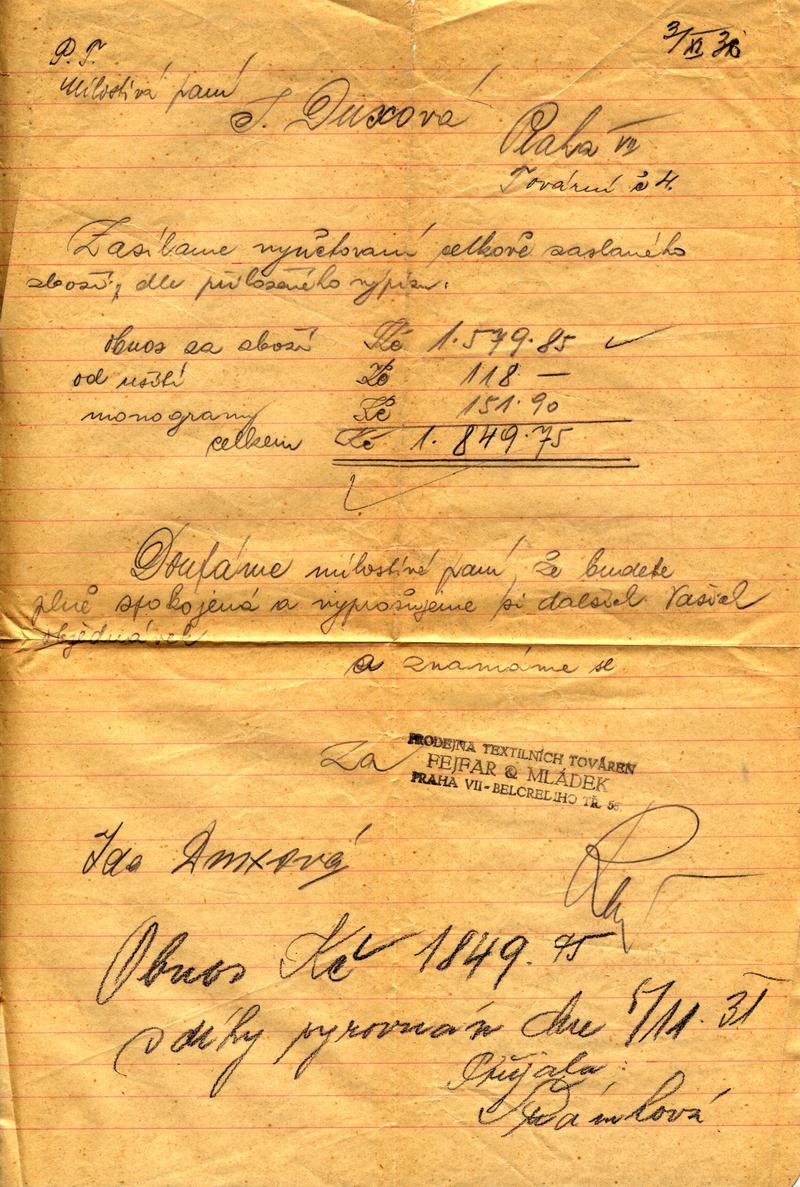 3/XI 31
P. T.
Milostivá paní
I. Duxová
Praha VII
Tovární č 4.
Zasíláme vyučtovaní celkově zaslaného
zboží, dle přiloženého výpisu:
obnos za zboží Kč 1.579.85
od ušití Kč 118 —
monogramy Kč 151.90
celkem Kč 1.849.75
Doufáme milostivá paní, že budete
plně spokojená a vyprošujeme si dalších Vašich
objednávek
a znamáme se
Za
PRODEJNA TEXTILNÍCH TOVÁREN
FEJFAR & MLÁDEK
PRAHA VII - BELCREDIHO TŘ. 56
Ida Duxová
Obnos Kč 1849.75
s díky vyrovnán dne 5/11. 31
Přijala: